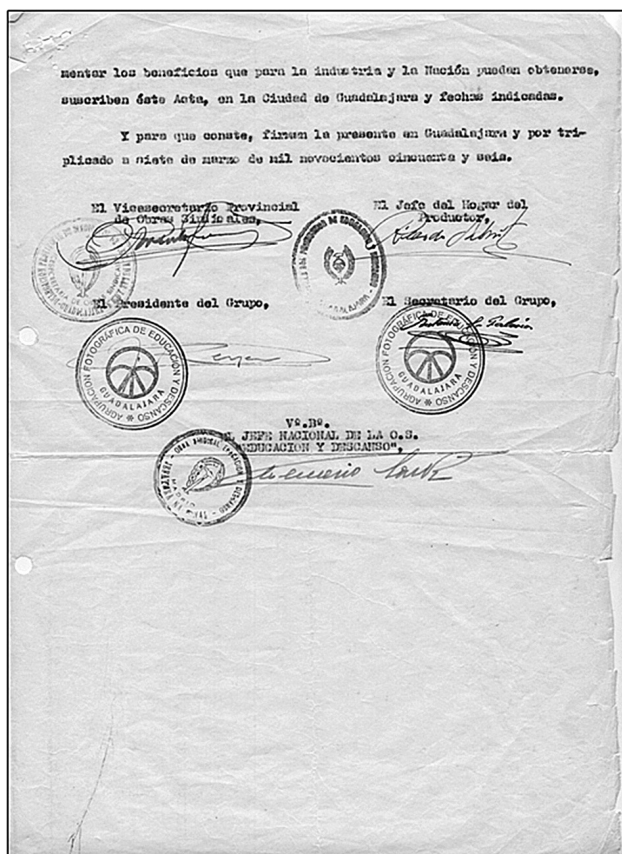 mentar los beneficios que para la industria y la Nación puedan obtenerse,
suscriben éste Acta, en la Ciudad de Guadalajara y fechas indicadas.
Y para que conste, firman la presente en Guadalajara y por tri-
plicado a siete de marzo de mil novecientos cincuenta y seis.
El Vicesecretario Provincial
de Obras Sindicales,
El Jefe del Hogar del
Productor,
El Presidente del Grupo,
El Secretario del Grupo,
AGRUPACIÓN FOTOGRÁFICA DE EDUCACIÓN Y DESCANSO
GUADALAJARA
AGRUPACIÓN FOTOGRÁFICA DE EDUCACIÓN Y DESCANSO
GUADALAJARA
Vº.Bº.
EL JEFE NACIONAL DE LA O.S.
"EDUCACION Y DESCANSO",